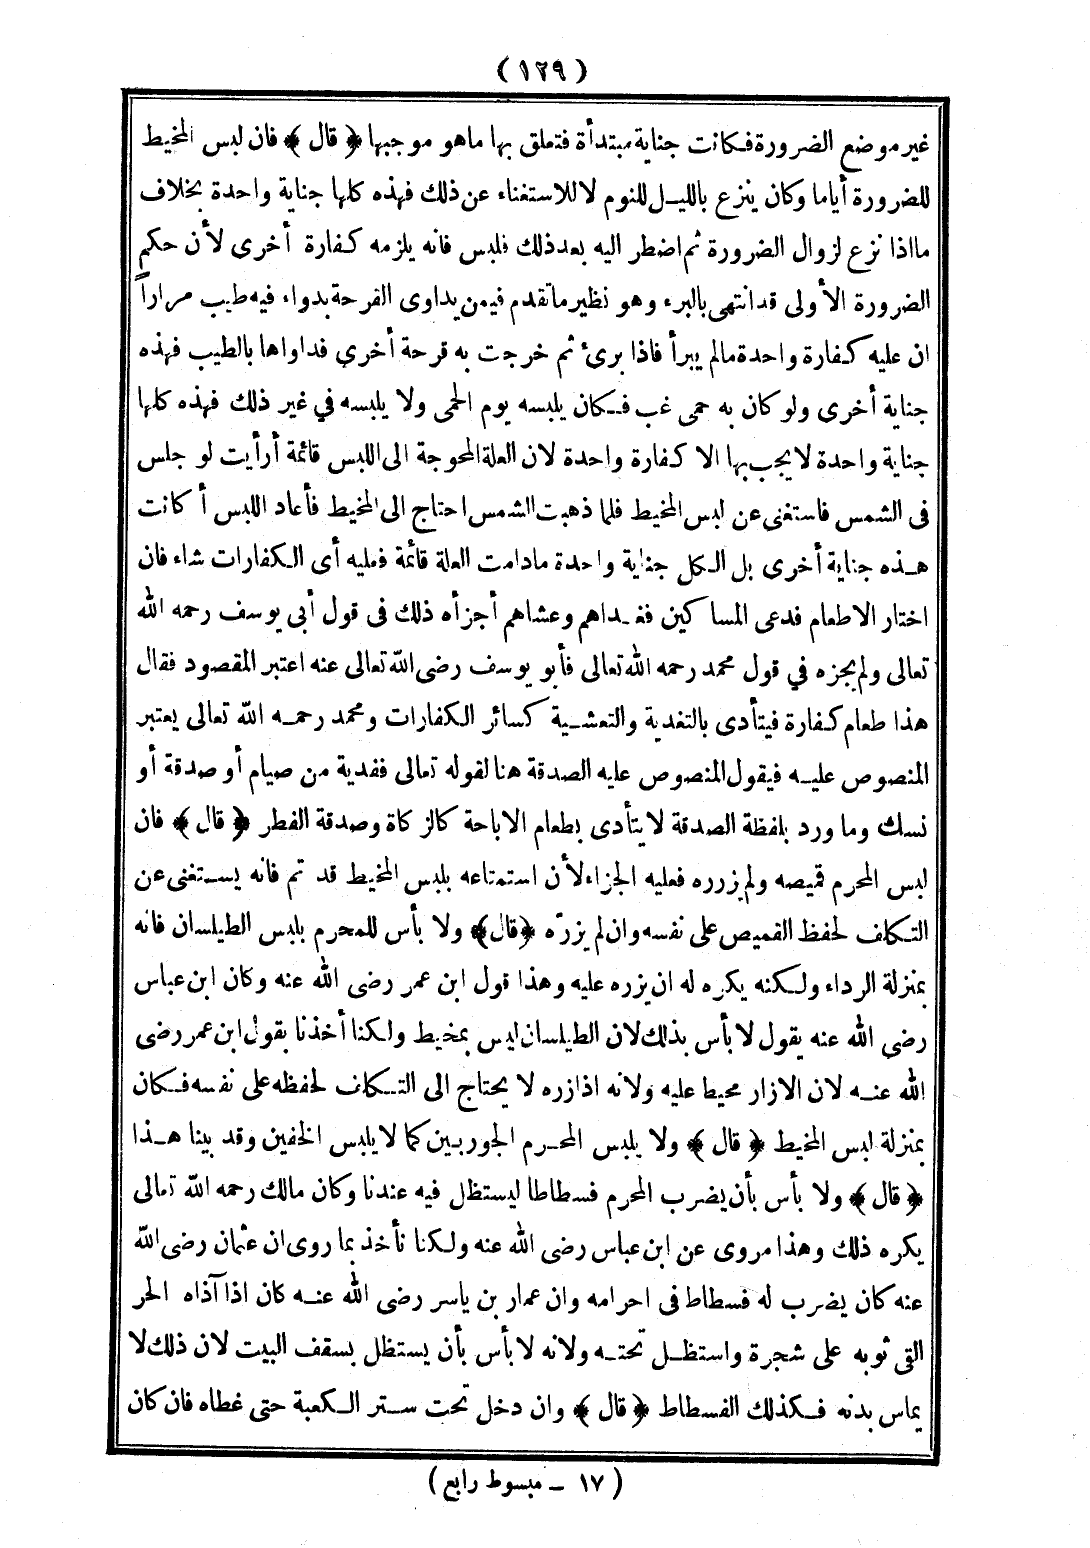 (١٢٩)
غير موضع الضرورة فكانت جناية مبتدأة فتعلق بها ما هو موجبها ﴿ قال ﴾ فان لبس المخيط
للضرورة أياما وكان ينزع بالليل للنوم لا للاستغناء عن ذلك فهذه كلها جناية واحدة بخلاف
ما اذا نزع لزوال الضرورة ثم اضطر اليه بعد ذلك فلبس فانه يلزمه كفارة أخرى لأن حكم
الضرورة الأولى قد انتهى بالبرء وهو نظير ما تقدم فيمن يداوى القرحة بدواء فيه طيب مراراً
ان عليه كفارة واحدة مالم يبرأ فاذا برئ ثم خرجت به قرحة أخرى فداواها بالطيب فهذه
جناية أخرى ولو كان به حمى غب فكان يلبسه يوم الحمى ولا يلبسه في غير ذلك فهذه كلها
جناية واحدة لا يجب بها الا كفارة واحدة لان العلة المحوجة الى اللبس قائمة أرأيت لو جلس
فى الشمس فاستغنى عن لبس المخيط فلما ذهبت الشمس احتاج الى المخيط فأعاد اللبس أ كانت
هذه جناية أخرى بل الكل جناية واحدة مادامت العلة قائمة فعليه أى الكفارات شاء فان
اختار الاطعام فدعى المساكين فغداهم وعشاهم أجزأه ذلك فى قول أبي يوسف رحمه الله
تعالى ولم يجزه في قول محمد رحمه الله تعالى فأبو يوسف رضى الله تعالى عنه اعتبر المقصود فقال
هذا طعام كفارة فيتأدى بالتغدية والتعشية كسائر الكفارات ومحمد رحمه الله تعالى يعتبر
المنصوص عليه فيقول المنصوص عليه الصدقة هنا لقوله تعالى ففدية من صيام أو صدقة أو
نسك وما ورد بلفظة الصدقة لا يتأدى بطعام الاباحة كالزكاة وصدقة الفطر ﴿ قال ﴾ فان
لبس المحرم قميصه ولم يزرره فعليه الجزاء لأن استمتاعه بلبس المخيط قد تم فانه يستغنى عن
التكلف لحفظ القميص على نفسه وان لم يزرّه ﴿قال﴾ ولا بأس للمحرم بلبس الطيلسان فانه
بمنزلة الرداء ولكنه يكره له ان يزره عليه وهذا قول ابن عمر رضى الله عنه وكان ابن عباس
رضى الله عنه يقول لا بأس بذلك لان الطيلسان ليس بمخيط ولكنا أخذنا بقول ابن عمر رضى
الله عنه لان الازار محيط عليه ولانه اذا زره لا يحتاج الى التكلف لحفظه على نفسه فكان
بمنزلة لبس المخيط ﴿ قال ﴾ ولا يلبس المحرم الجوربين كما لا يلبس الخفين وقد بينا هذا
﴿ قال ﴾ ولا بأس بأن يضرب المحرم فسطاطا ليستظل فيه عندنا وكان مالك رحمه الله تعالى
يكره ذلك وهذا مروى عن ابن عباس رضى الله عنه ولكنا نأخذ بما روى ان عثمان رضى الله
عنه كان يضرب له فسطاط فى احرامه وان عمار بن ياسر رضى الله عنه كان اذا آذاه الحر
القى ثوبه على شجرة واستظل تحته ولانه لا بأس بأن يستظل بسقف البيت لان ذلك لا
يماس بدنه فكذلك الفسطاط ﴿ قال ﴾ وان دخل تحت ستر الكعبة حتى غطاه فان كان
(١٧ – مبسوط رابع)